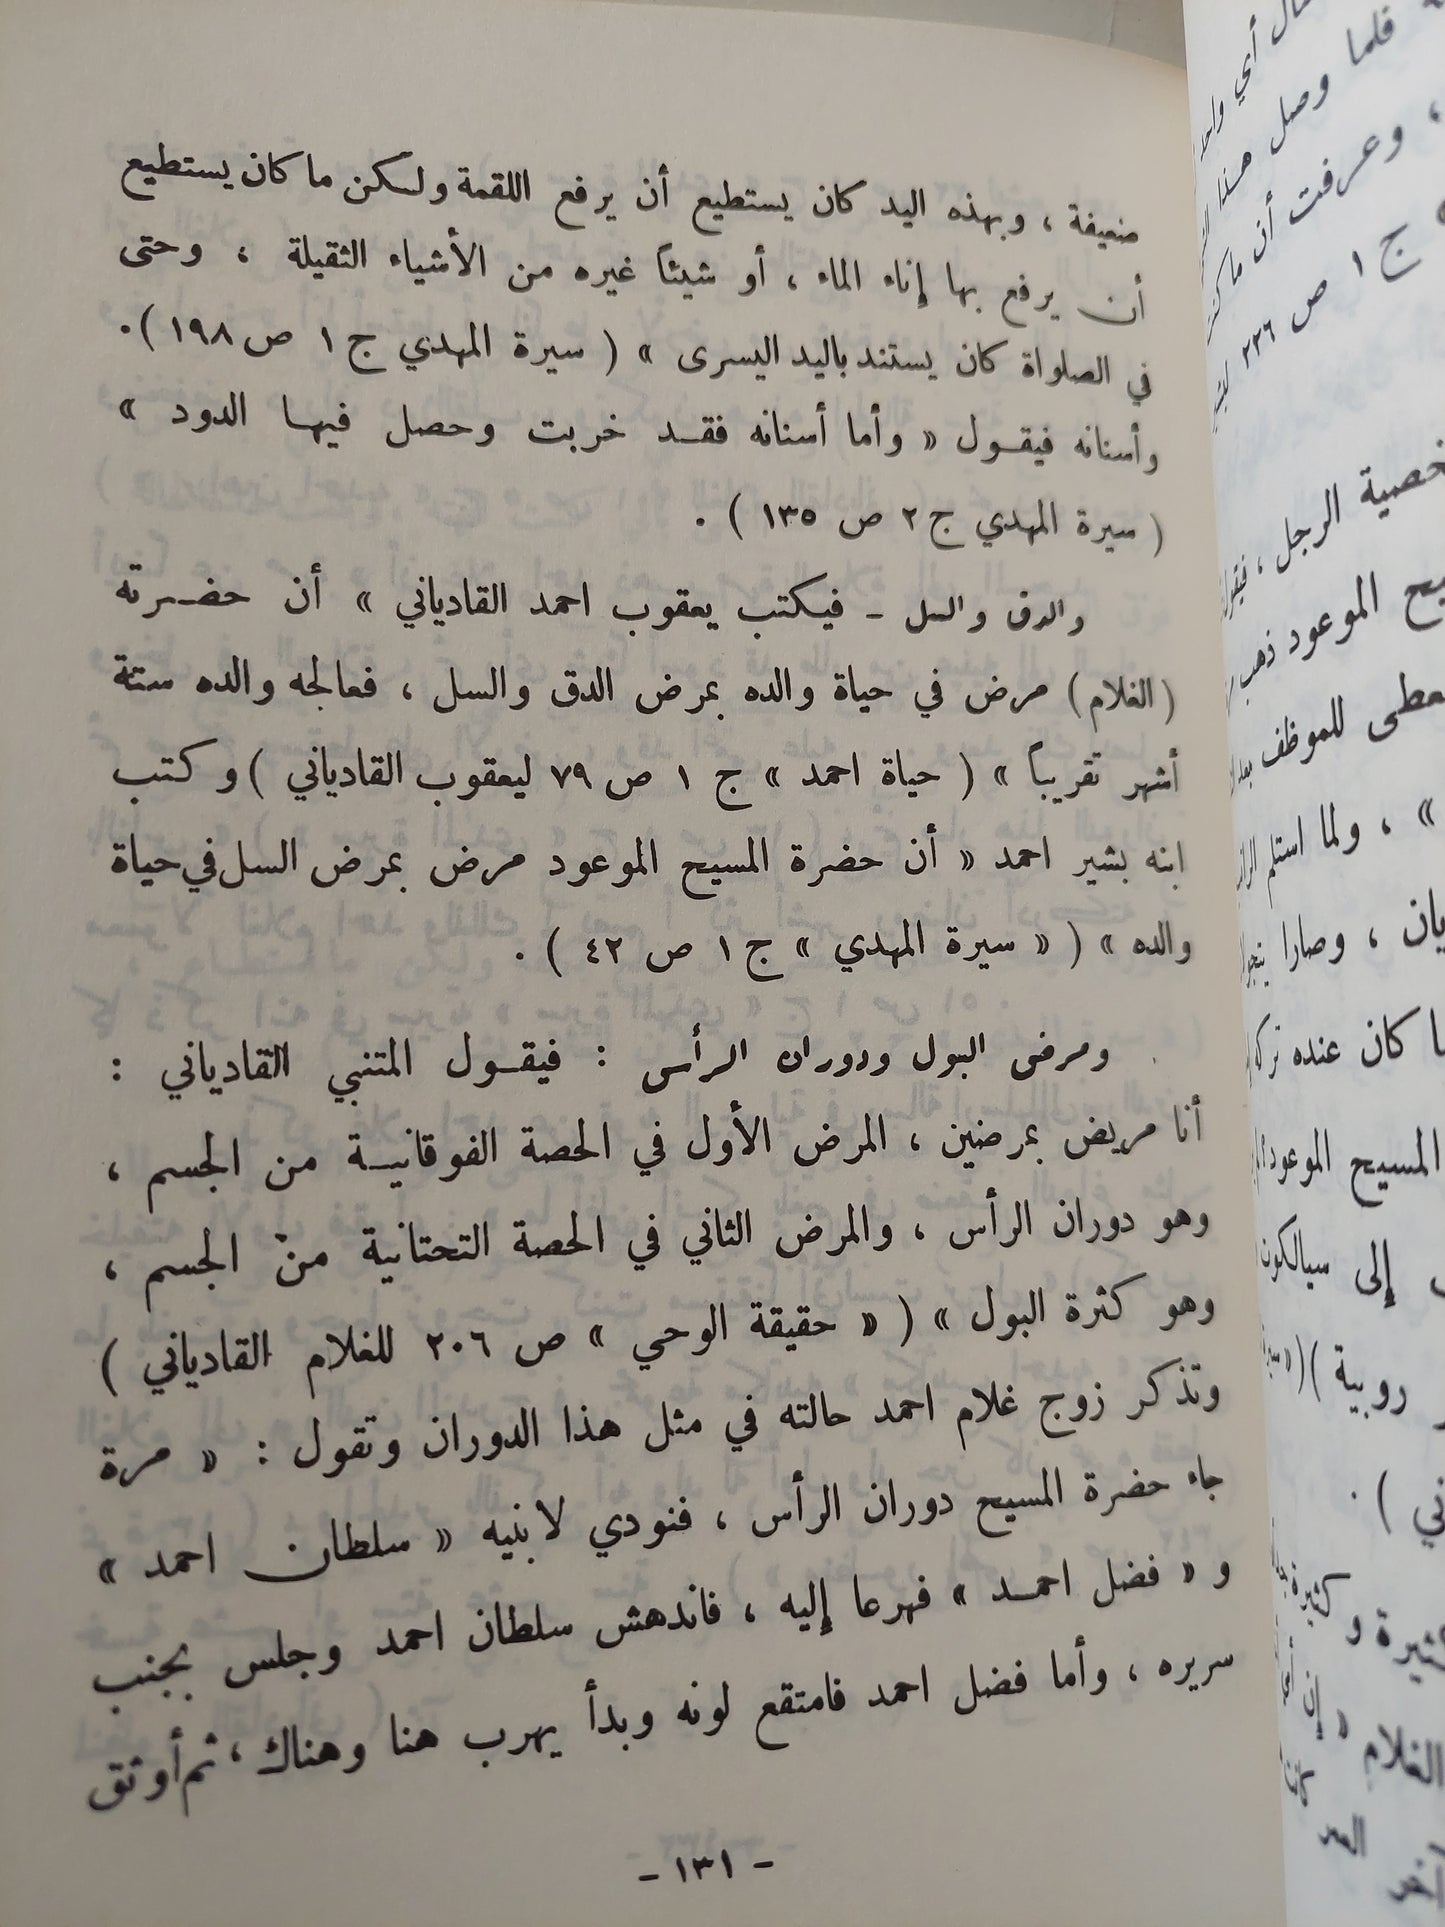 ضعيفة ، وبهذه اليد كان يستطيع أن يرفع اللقمة ولكن ما كان يستطيع
أن يرفع بها إناء الماء ، أو شيئاً غيره من الأشياء الثقيلة ، وحتى
في الصلواة كان يستند باليد اليسرى » ( سيرة المهدي ج ١ ص ١٩٨ ) .
وأسنانه فيقول « وأما أسنانه فقد خربت وحصل فيها الدود »
( سيرة المهدي ج ٢ ص ١٣٥ ) .
والدق والسل - فيكتب يعقوب احمد القادياني » أن حضرته
( الغلام ) مرض في حياة والده بمرض الدق والسل ، فعالجه والده ستة
أشهر تقريباً » ( حياة احمد » ج ١ ص ٧٩ ليعقوب القادياني ) وكتب
ابنه بشير احمد « أن حضرة المسيح الموعود مرض بمرض السل في حياة
والده » ( « سيرة المهدي » ج ١ ص ٤٢ ) .
ومرض البول ودوران الرأس : فيقول المتنبي القادياني :
أنا مريض بمرضين ، المرض الأول في الحصة الفوقانية من الجسم ،
وهو دوران الرأس ، والمرض الثاني في الحصة التحتانية من الجسم ،
وهو كثرة البول » ( « حقيقة الوحي » ص ٢٠٦ للغلام القادياني )
وتذكر زوج غلام احمد حالته في مثل هذا الدوران وتقول : « مرة
جاء حضرة المسيح دوران الرأس ، فنودي لابنيه « سلطان احمد »
و « فضل احمد » فهرعا إليه ، فاندهش سلطان احمد وجلس بجنب
سريره ، وأما فضل احمد فامتقع لونه وبدأ يهرب هنا وهناك ، ثم أوثق
- ١٣١ -
أي
فلما وصل هذا
، وعرفت أن ما
ج ١ ص ٢٢٦
الرجل ، فيقول
الموعود ذهب
للموظف
» ، ولما استلم
، وصارا
كان عنده
المسيح الموعود
إلى سيالكوت
روبية ) (
) .
كثيرة و
الغلام « إن